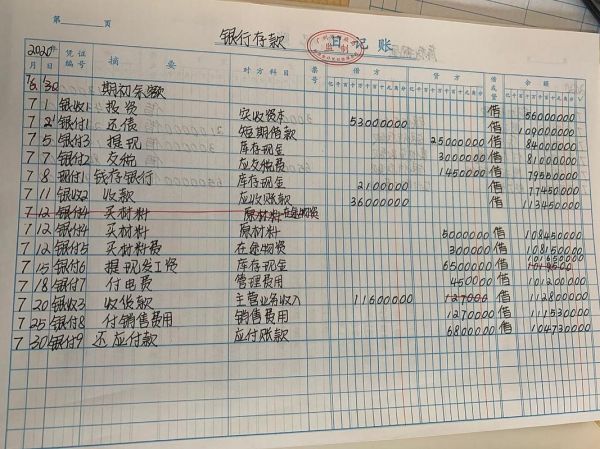 第 页
银行存款 日记账
2020年 凭证编号 摘要 对方科目 票号 借方 贷方 借或贷 余额 √
月 日 亿千百十万千百十元角分 亿千百十万千百十元角分 亿千百十万千百十元角分
6 30 期初余额 借 56000000
7 1 银收1 投资 实收资本 53000000 借 109000000
7 2 银付1 还债 短期借款 25000000 借 84000000
7 5 银付3 提现 库存现金 3000000 借 81000000
7 7 银付2 交税 应交税费 1450000 借 79550000
7 8 现付1 钱存银行 库存现金 2100000 借 77450000
7 11 银收2 收款 应收账款 36000000 借 113450000
7 12 银付4 买材料 原材料 在途物资
7 12 银付4 买材料 原材料 5000000 借 108450000
7 12 银付5 买材料费 在途物资 300000 借 108150000
7 15 银付6 提现发工资 库存现金 6500000 借 101650000
7 18 银付7 付电费 管理费用 450000 借 101200000
7 20 银收3 收货款 主营业务收入 11600000 127000 借 112800000
7 25 银付8 付销售费用 销售费用 1270000 借 111530000
7 30 银付9 还应付款 应付账款 6800000 借 104730000